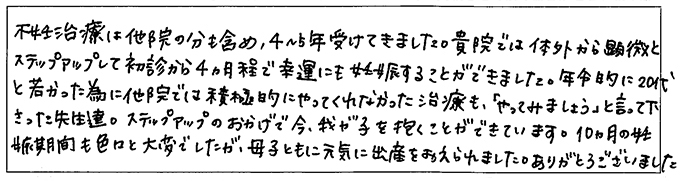 不妊治療は他院の分も含め,4〜5年受けてきました。貴院では体外から顕微と
ステップアップして初診から4ヵ月程で幸運にも妊娠することができました。年令的に20代
と若かった為に他院では積極的にやってくれなかった治療も、「やってみましょう」と言って下
さった先生達。ステップアップのおかげで今、我が子を抱くことができています。10ヵ月の妊
娠期間も色々と大変でしたが、母子ともに元気に出産をおえられました。ありがとうございました